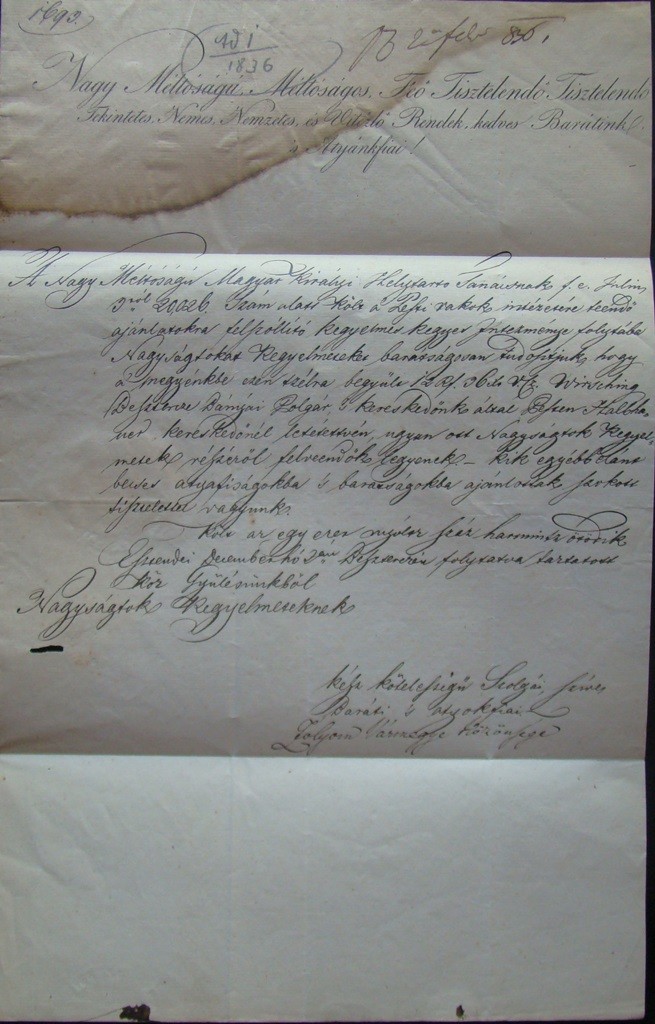 1693.
Ad 1
1836
23 febr 836.
Nagy Méltóságú, Méltóságos, Fő Tisztelendő, Tisztelendő
Tekintetes, Nemes, Nemzetes, és Vitézlő Rendek, kedves Barátink
's Atyánkfiai!
A Nagy Méltóságú Magyar Királyi Helytartó Tanácsnak f. e. Julius
20026. Szám alatt költ a Pesti vakok intézetére teendő
ajánlatokra felszóllító kegyelmes kegyes Intézménye folytába
Nagyságtokat Kegyelmeteket barátságosan tudósítjuk, hogy
a megyénkbe ezen czélra begyült 12 Rf. 36 Winsching
Besztercze Bányai Polgár, 's kereskedőnk által Pesten
kereskedőnél letétetvén, ugyan ott Nagyságtok Kegyel-
metek részéről felveendők légyenek. – Kik egyébb eránt
becses atyafiságokba 's barátságokba ajánlottak
tisztelettel vagyunk.
Költ az egy ezer nyolcz száz harmincz ötödik
Esztendei December hó 2án Beszterczén folytatva tartatott
köz Gyülésünkből
Nagyságtok Kegyelmeteknek
kész kötelességű Szolgái, szíves
Baráti 's attyokfiai
Zólyom Vármegye Közönsége